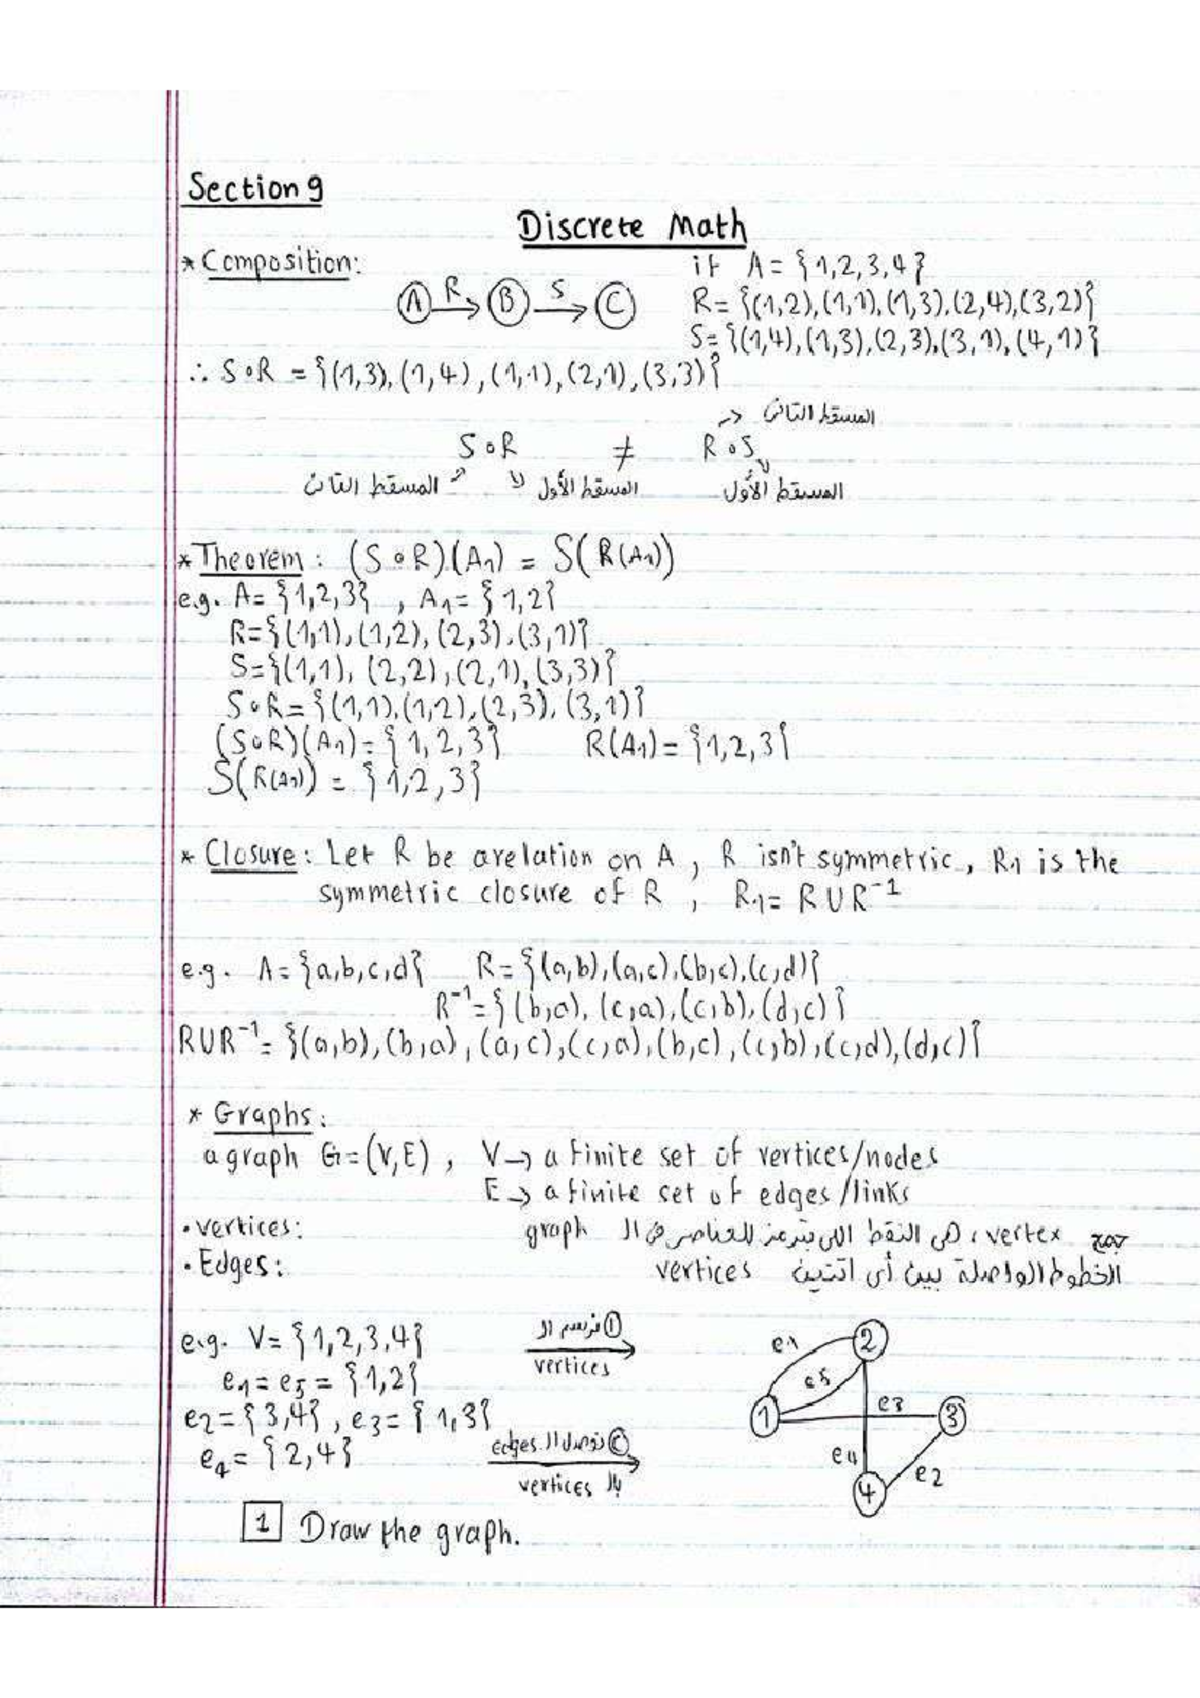 Section 9
Discrete Math
* Composition:
if A = {1,2,3,4}
A R→ B S→ C
R = {(1,2),(1,1),(1,3),(2,4),(3,2)}
S = {(1,4),(1,3),(2,3),(3,1),(4,1)}
∴ S∘R = {(1,3),(1,4),(1,1),(2,1),(3,3)}
المسقط الثانى
S∘R ≠ R∘S
المسقط الثانى المسقط الأول المسقط الأول
* Theorem: (S∘R)(A1) = S(R(A1))
e.g. A = {1,2,3} , A1 = {1,2}
R = {(1,1),(1,2),(2,3),(3,1)}
S = {(1,1),(2,2),(2,1),(3,3)}
S∘R = {(1,1),(1,2),(2,3),(3,1)}
(S∘R)(A1) = {1,2,3} R(A1) = {1,2,3}
S(R(A1)) = {1,2,3}
* Closure: Let R be arelation on A , R isn't symmetric, R1 is the
symmetric closure of R , R1 = R∪R⁻¹
e.g. A = {a,b,c,d} R = {(a,b),(a,c),(b,c),(c,d)}
R⁻¹ = {(b,a),(c,a),(c,b),(d,c)}
R∪R⁻¹ = {(a,b),(b,a),(a,c),(c,a),(b,c),(c,b),(c,d),(d,c)}
* Graphs:
a graph G=(V,E) , V → a finite set of vertices/nodes
E → a finite set of edges/links
• vertices: جمع vertex ، هى النقط اللى بترمز للعناصر فى الـ graph
• Edges: الخطوط الواصلة بين أى اتنين vertices
e.g. V = {1,2,3,4}
① نرسم الـ
vertices
e1 = e5 = {1,2}
e2 = {3,4} , e3 = {1,3}
e4 = {2,4}
② نوصل الـ edges
بالـ vertices
e1 2
e5
1 e3 3
e4 e2
4
1 Draw the graph.